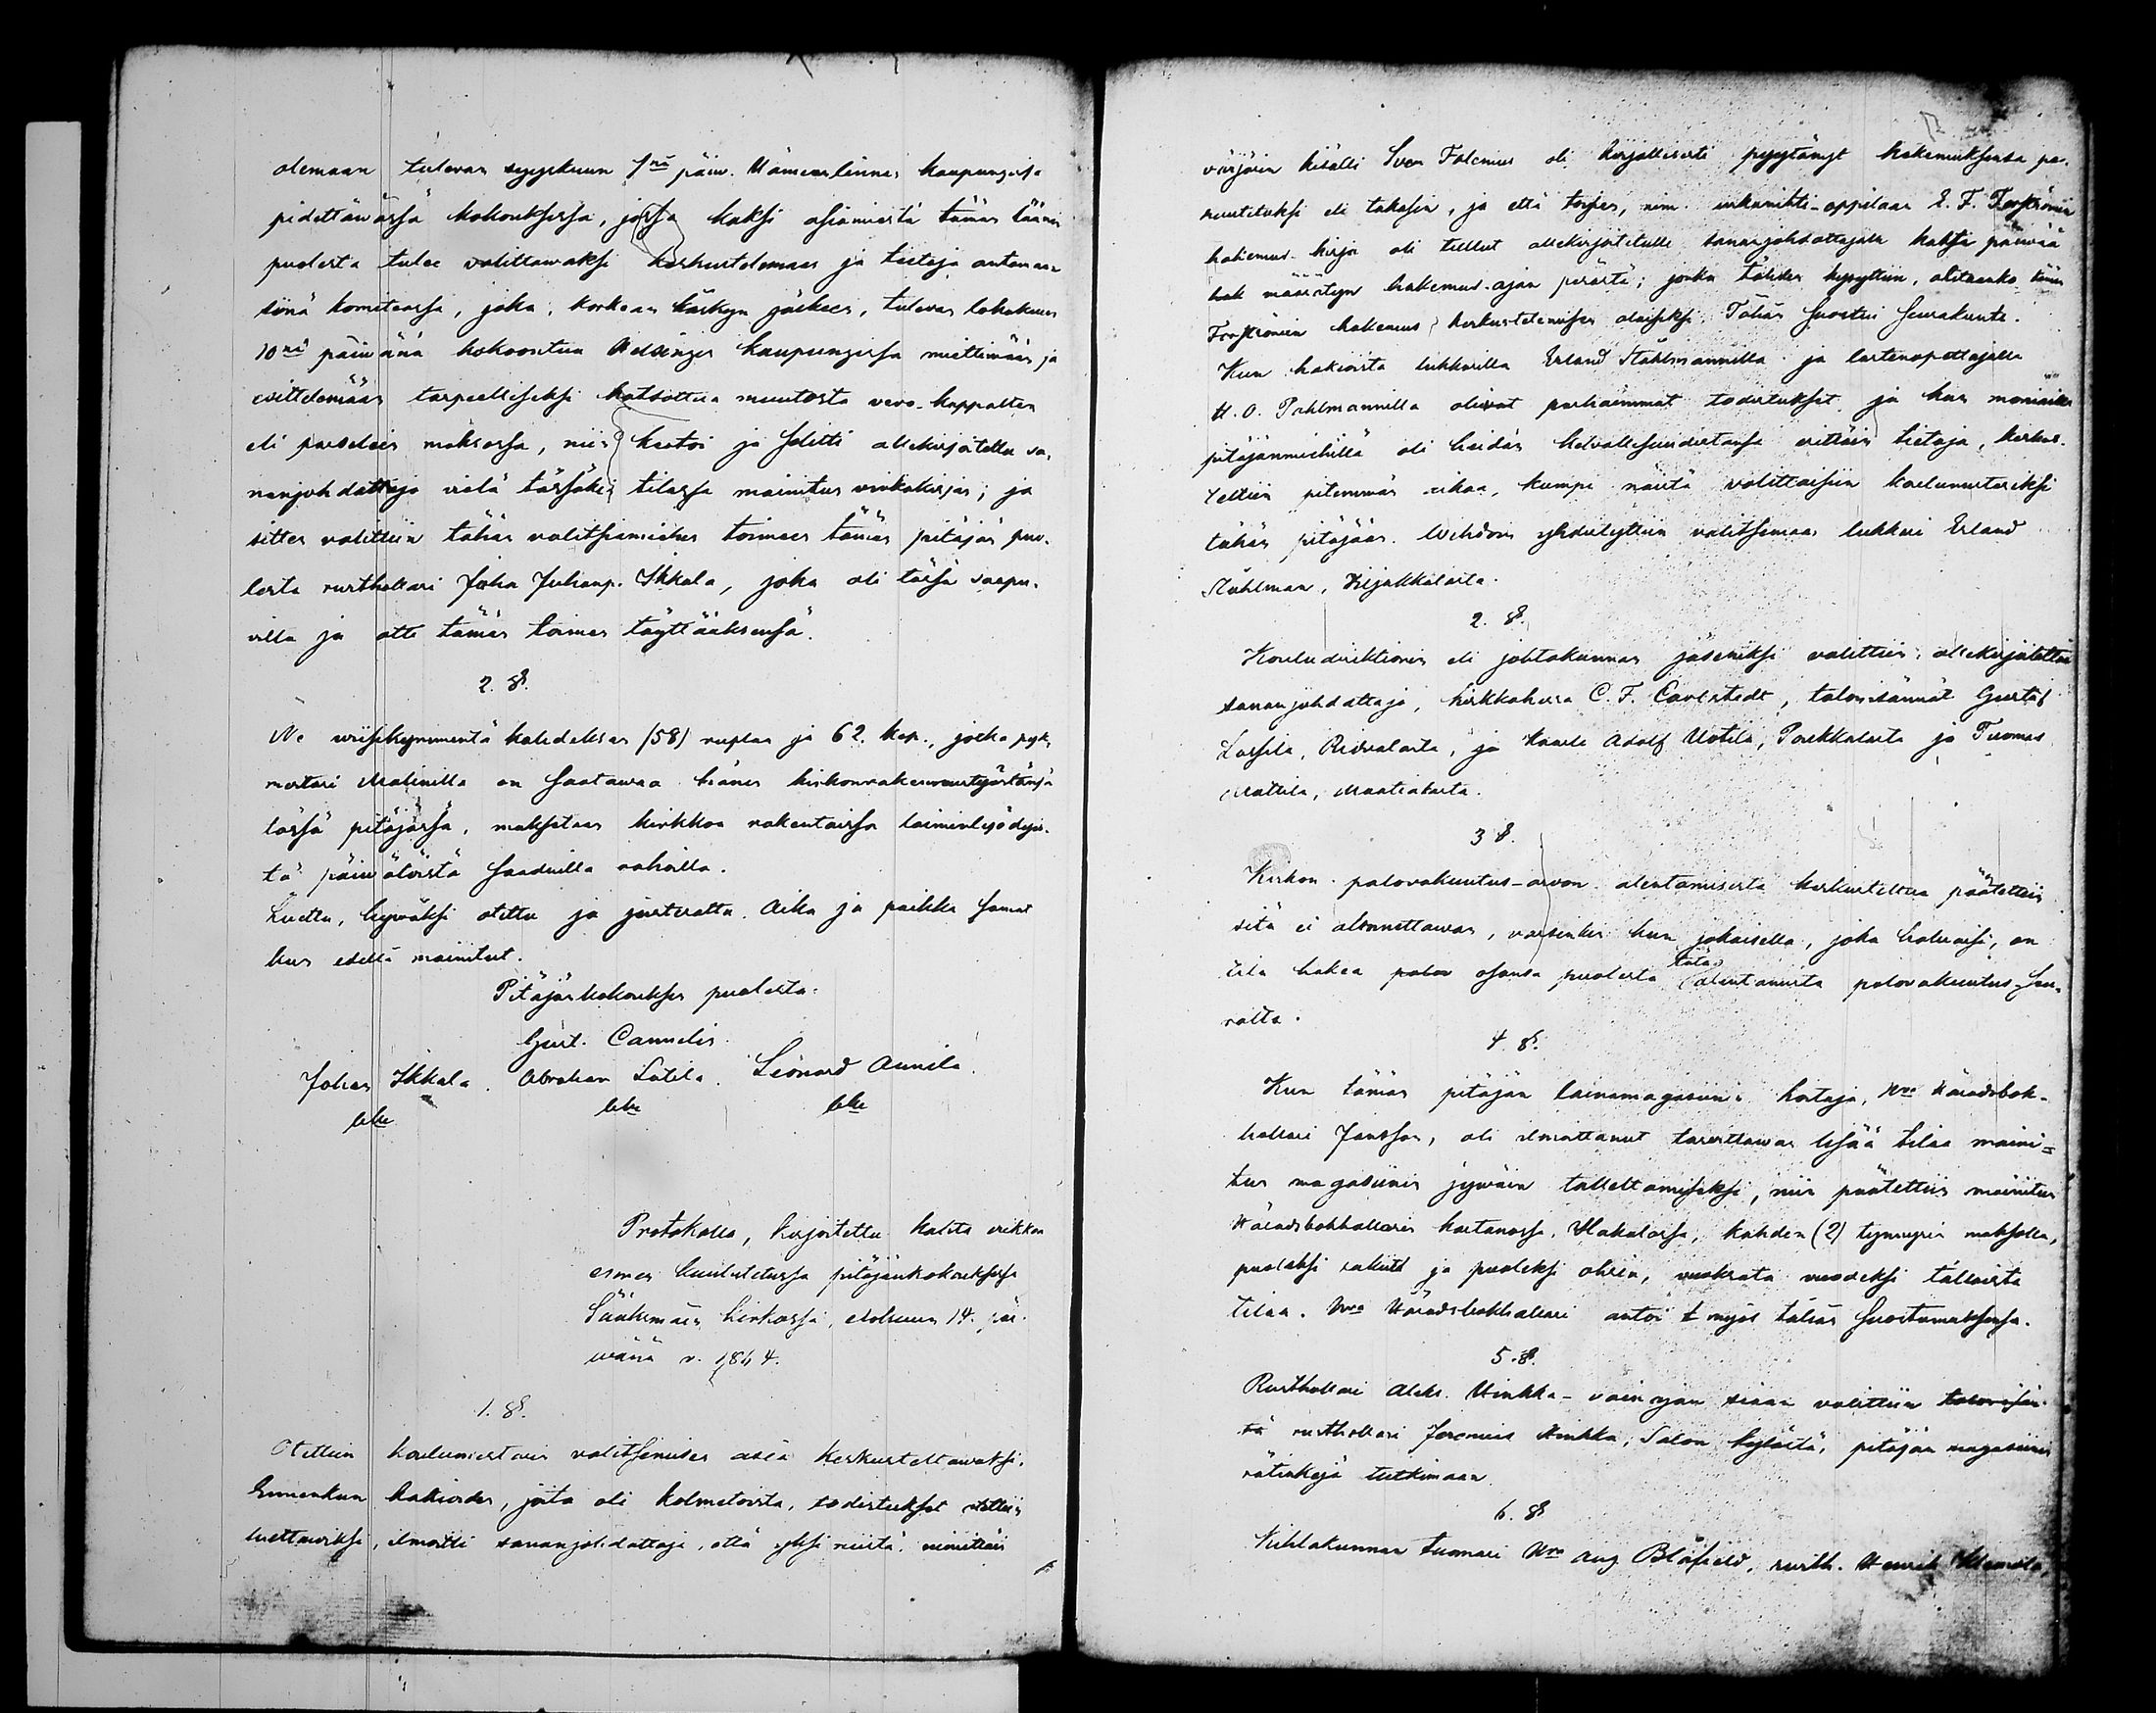 olemaan tulevan syyskuun 1nä päiv. Hämeenlinnan kaupungissa
pidettäwässä kokouksessa, jossa kaksi asiamiestä tämän läänin
puolesta tulee valittawaksi keskustelemaan ja tietoja antamaan
siinä komiteassa, joka, korkean käskyn jälkeen, tulevan lokakuun
10nä päiwänä kokoontuu Helsingin kaupungissa miettimään ja
esittelemään tarpeelliseksi katsottua muutosta vero-kappalten
eli parselein maksossa, niin luetoi ja selitti allekirjoitettu sa-
nanjohdattaja vielä tässäkin tilassa mainitun virkakirjan; ja
sitten valittiin tähän valitsiamiehen toimeen tämän pitäjän puo-
lesta rusthollari Joha Juhanp. Ikkala, joka oli tässä saapu-
villa ja otti tämän toimen täyttääksensä.
2. §.
Ne wiisikymmentä kahdeksan (58) ruplaa ja 62. kop., jotka
mestari Malinilla on saatawaa hänen kirkonrakennustyöstänsä
tässä pitäjässä, maksetaan kirkkoa rakentaissa laiminlyödyis-
tä päiwätöistä saaduilla rahoilla.
Luettu, hywäksi otettu ja justerattu. Aika ja paikka samat
kun edellä mainitut.
Pitäjänkokouksen puolesta:
Gust. Cannelin.
Johan Ikkala. Abraham Lätilä. Leonard Aunila.
Protokolla, kirjoitettu kahta wiikkoa
ennen kuulutetussa pitäjänkokouksessa
Sääksmäen kirkossa, elokuun 14. päi-
wänä v. 1864.
1. §.
Otettiin koulumestarin valitsemisen asia keskusteltawaksi.
Ennenkun hakioiden, joita oli kolmetoista, todistukset otettiin
luettawiksi, ilmoitti sananjohdattaja, että yksi niistä, nimittäin
värjärin kisälli Sven Folenius oli kirjallisesti pyytänyt hakemuksensa pe-
ruutetuksi eli takasin, ja että toisen, nim. urkunihti-oppilaan E. F. Forströmin
hakemus-kirja oli tullut allekirjoitetulle sananjohdattajalle kaksi päiwää
määrätyn hakemus-ajan perästä; jonka tähden kysyttiin, otitaanko tämän
Forströmin hakemus keskustelemisen alaiseksi. Tähän suostui seurakunta.
Kun hakioista lukkarilla Erland Ståhlmannilla ja lastenopettajalla
H. O. Pahlmannilla oliwat parhaimmat todistukset, ja kun moniailla
pitäjänmiehillä oli heidän kelvollisuudestansa erittäin tietoja, keskus-
teltiin pitemmän aikaa, kumpi näistä valittaisiin koulumestariksi
tähän pitäjään. Wihdoin yhdistyttiin valitsemaan lukkari Erland
Ståhlman, Kiljakkalasta.
2. §.
Kouludirektionin eli johtokunnan jäseniksi valittiin, allekirjoitettu
sananjohdattaja, kirkkoherra C. F. Cavenstedt, talonisännät Gustaf
Lassila, Ridvalasta, ja Kaarle Adolf Uotila, Parkkalasta ja Tuomas
Mattila, Maatialasta.
3 §.
Kirkon palovakuutus-arvon alentamisesta keskusteltua päätettiin
sitä ei alennettawan, varsinkin kun jokaisella, joka haluaisi, on
tila hakea palov osansa puolesta tätä alentamista palovakuutus-seu-
ralta.
4. §.
Kun tämän pitäjän lainamagasiinin hoitaja, Hra Häradsbok-
hollari Jansson, oli ilmoittanut tarvittawan lisää tilaa maini-
tun magasiinin jywäin tallettamiseksi, niin päätettiin mainitun
Häradsbokhollarin kartanossa, Hakalassa, kahden (2) tynnyrin maksolla,
puoleksi rukiita ja puoleksi ohria, vuokrata vuodeksi tällaista
tilaa. Hra Häradsbokhollari antoi myös tähän suostumuksensa.
5. §.
Rusthollari Aleks. Hinkka-vainajan sijaan valittiin talonisän-
tä rusthollari Jeremias Hinkka, Salon kylästä, pitäjän magasiinin
rätinkejä tutkimaan.
6. §
Kihlakunnan tuomari Hra Aug Blåfield, rusth. Henrik